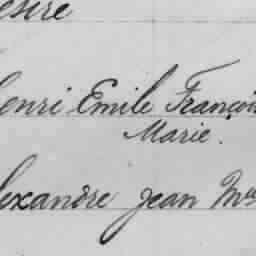 esire
enri Emile Françoi
Marie.
lexandre Jean M